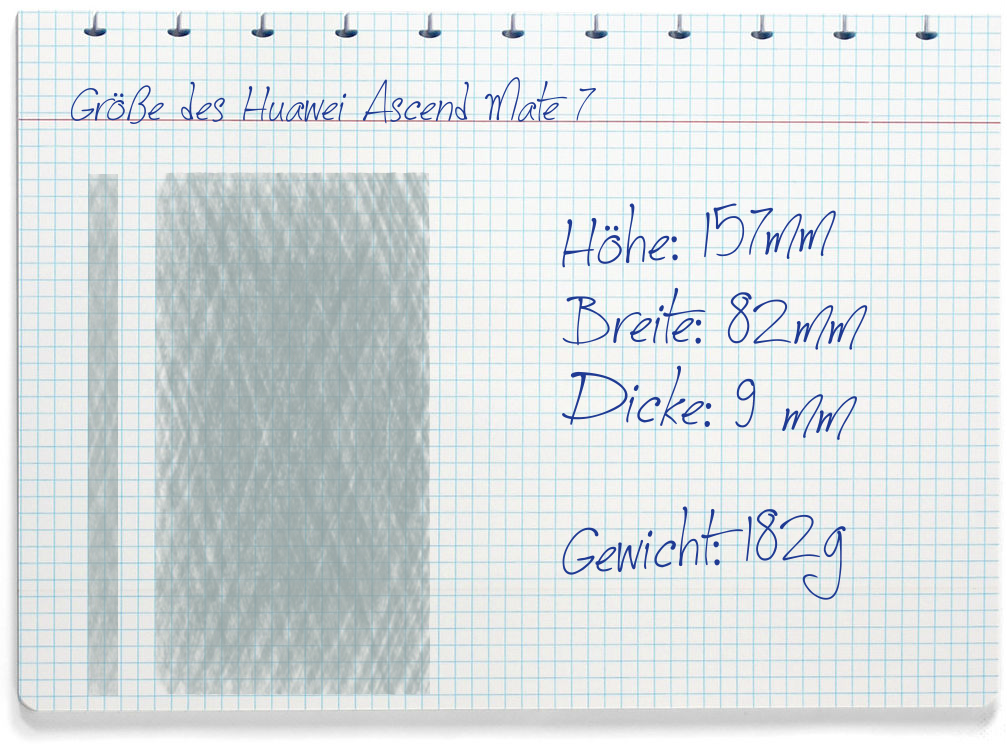 Größe des Huawei Ascend Mate 7
Höhe: 157mm
Breite: 82mm
Dicke: 9 mm
Gewicht: 182g